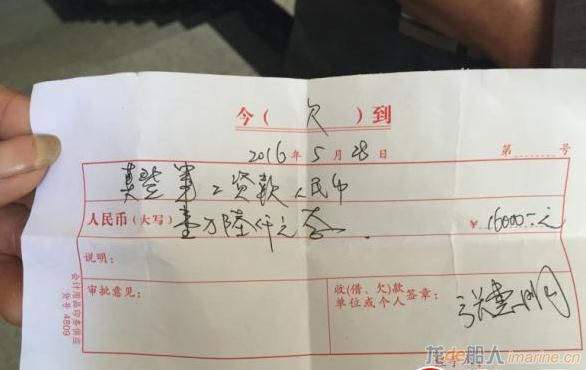 今( 欠 )到
2016年5月28日 第 号
贷款人民币
人民币(大写) 壹万陆仟元 ¥ 16000-元
说明:
审批意见: 收(借、欠)款 单位或个人 签章: 张 明
会计用品印务供应
货号 4809
龙de船人 imarine.cn